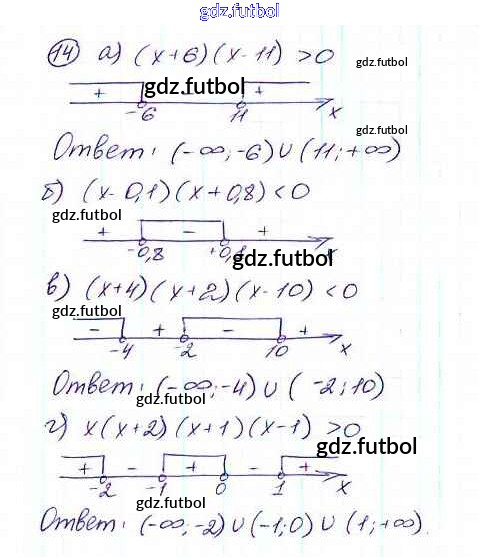 gdz.futbol
14 а) (x+6)(x-11) >0
gdz.futbol
gdz.futbol
+ +
-6 11 x
gdz.futbol
Ответ: (-∞;-6)∪(11;+∞)
б) (x-0,1)(x+0,8)<0
gdz.futbol
+ - +
-0,8 x
gdz.futbol
в) (x+4)(x+2)(x-10)<0
gdz.futbol
- + - +
-4 -2 10 x
Ответ: (-∞;-4)∪(-2;10)
gdz.futbol
г) x(x+2)(x+1)(x-1) >0
gdz.futbol
+ - + -
-2 -1 0 1 x
gdz.futbol
Ответ: (-∞;-2)∪(-1;0)∪(1;+∞)